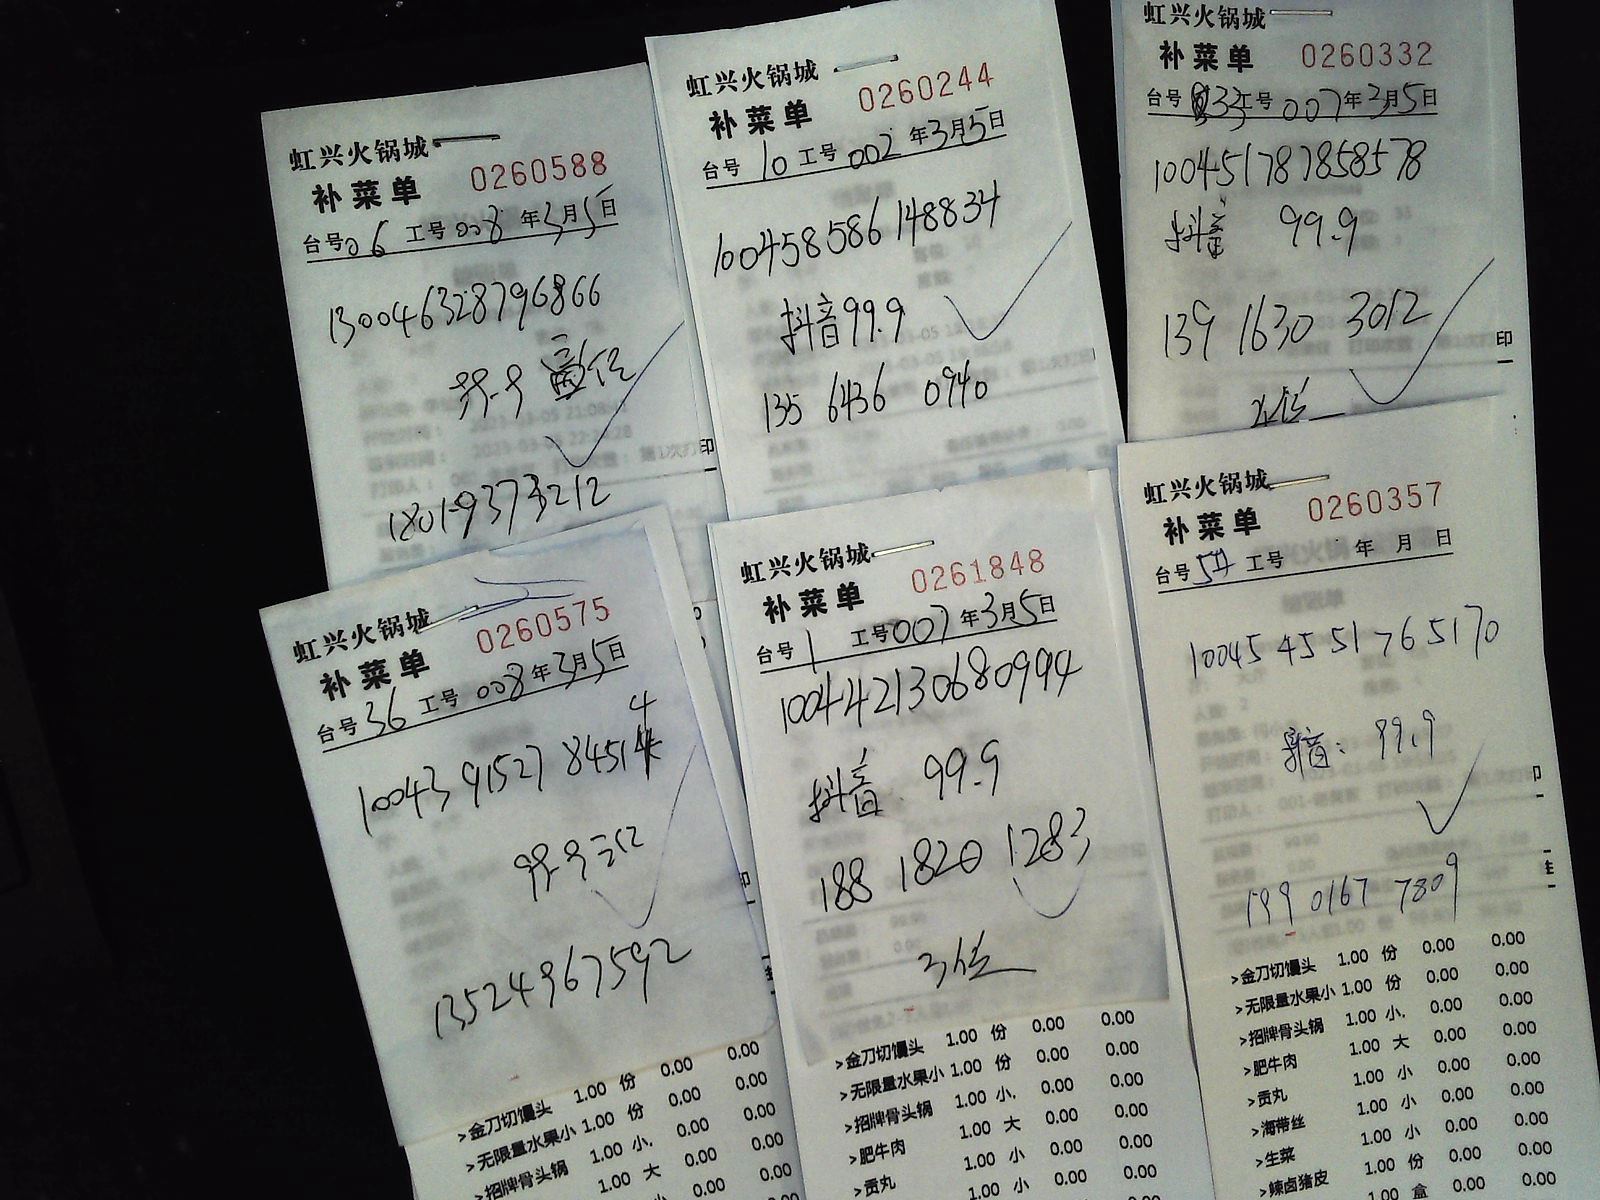 虹兴火锅城
补菜单 0260588
台号06 工号008 年3月5日
130046328796866
99.9
18019373212
虹兴火锅城
补菜单 0260244
台号10 工号002 年3月5日
100458586148834
抖音99.9
135 6436 0940
虹兴火锅城
补菜单 0260332
台号33工号007年3月5日
100451787858578
抖音 99.9
139 1630 3012
印
虹兴火锅城
补菜单 0260575
台号36 工号008年3月5日
10043 91527 84514
99.9
13524967592
>金刀切馒头 1.00 份 0.00 0.00
>无限量水果小 1.00 份 0.00 0.00
>招牌骨头锅 1.00 小. 0.00 0.00
1.00 大 0.00 0.00
虹兴火锅城
补菜单 0261848
台号1 工号007年3月5日
100442130680994
抖音. 99.9
188 1820 1283
3位
>金刀切馒头 1.00 份 0.00 0.00
>无限量水果小 1.00 份 0.00 0.00
>招牌骨头锅 1.00 小. 0.00 0.00
>肥牛肉 1.00 大 0.00 0.00
>贡丸 1.00 小 0.00 0.00
1.00 小 0.00 0.00
虹兴火锅城
补菜单 0260357
台号 工号 年 月 日
10045 45 51 76 5170
抖音: 99.9
199 0167 7809
>金刀切馒头 1.00 份 0.00 0.00
>无限量水果小 1.00 份 0.00 0.00
>招牌骨头锅 1.00 小. 0.00 0.00
>肥牛肉 1.00 大 0.00 0.00
>贡丸 1.00 小 0.00 0.00
>海带丝 1.00 小 0.00 0.00
>生菜 1.00 小 0.00 0.00
>辣卤猪皮 1.00 份 0.00 0.00
1.00 盒 0.00 0.00